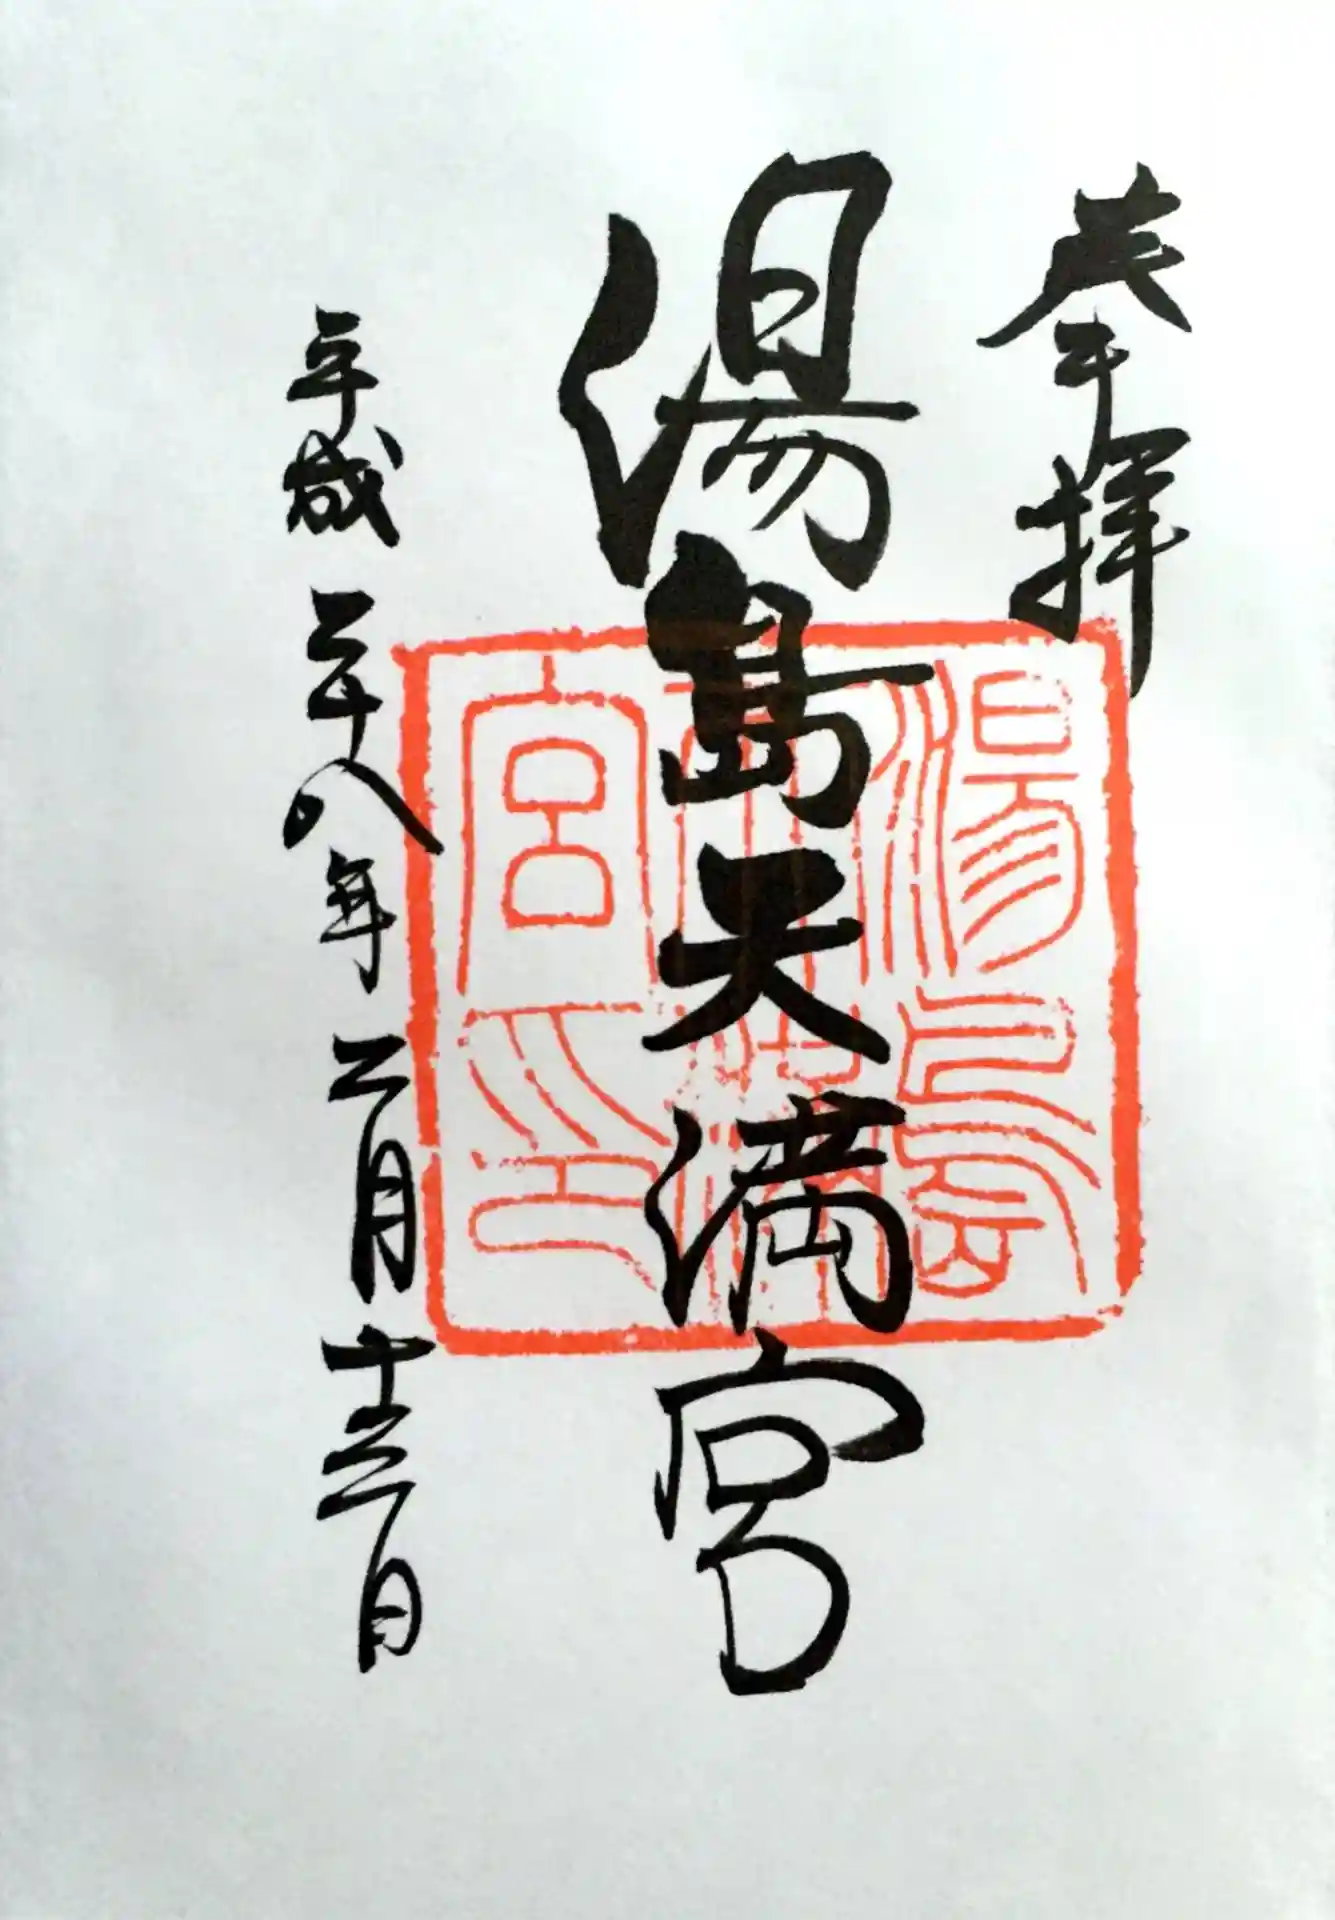 奉拝
湯島天満宮
平成二十八年二月十三日
湯島天満宮印